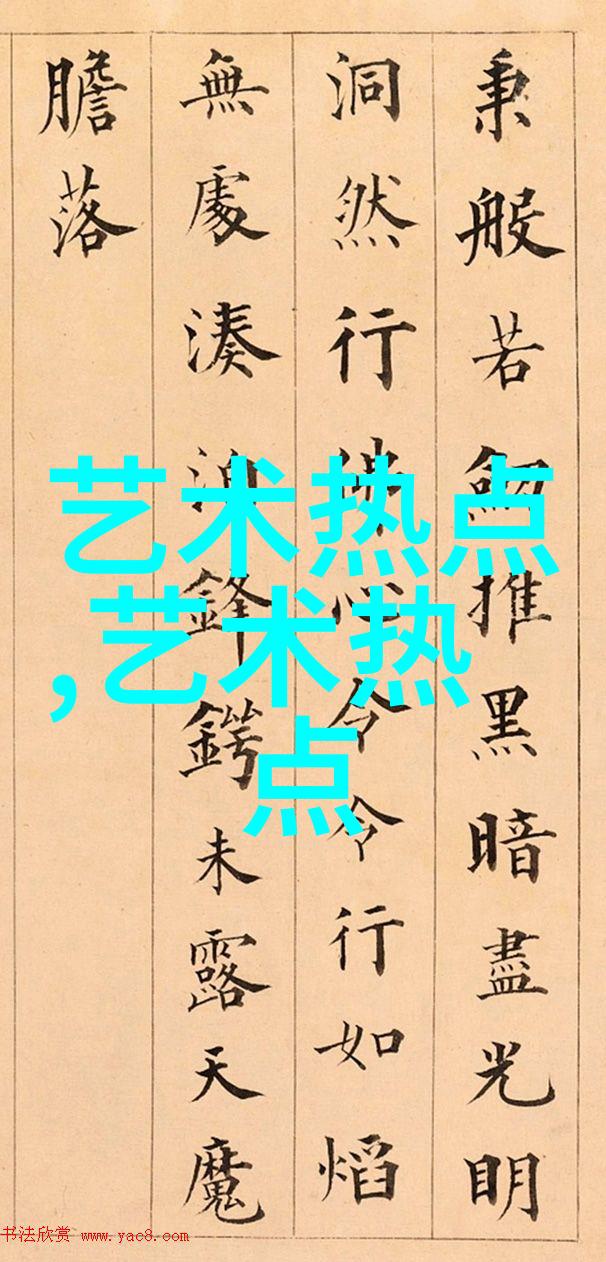 秉般若推黑暗盡光明
洞然行佛心令令行如熖
無處湊泊鋒鍔未露天魔
膽落
艺术热点
,艺术热
点
书法欣赏 www.yac8.com